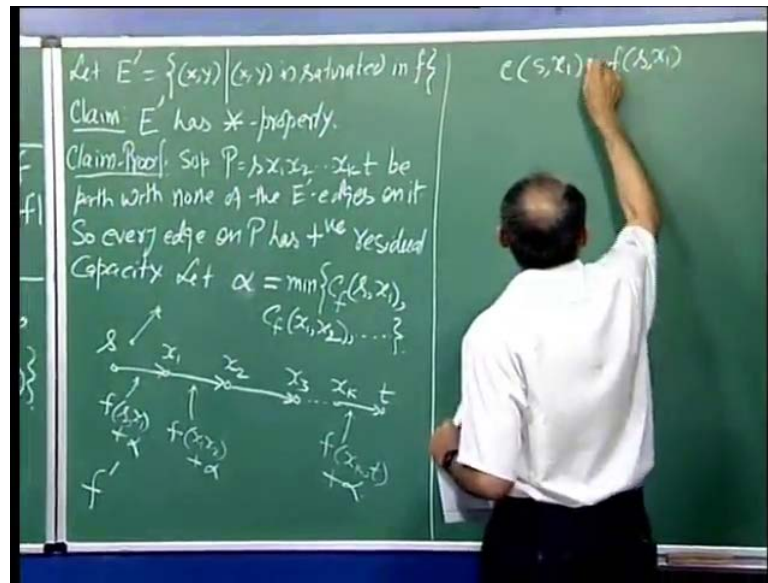 Let E' = {(x,y) | (x,y) is saturated in f}
Claim: E' has *-property.
Claim-Proof: Sop P = s x₁ x₂ ... xₖ t be
path with none of the E'-edges on it
So every edge on P has +ve residual
Capacity. Let α = min{C_f(s,x₁),
C_f(x₁,x₂), ....}.
s x₁ x₂ x₃ ... xₖ t
f(s,x₁) +α f(x₁,x₂) +α f(xₖ,t) +α
f'
c(s,x₁) f(s,x₁)
f
)}